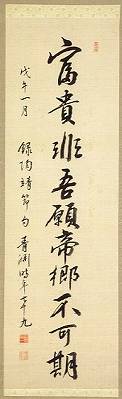 富貴非吾願帝郷不可期
戊午一月 録陶靖節句 青淵時年七十九